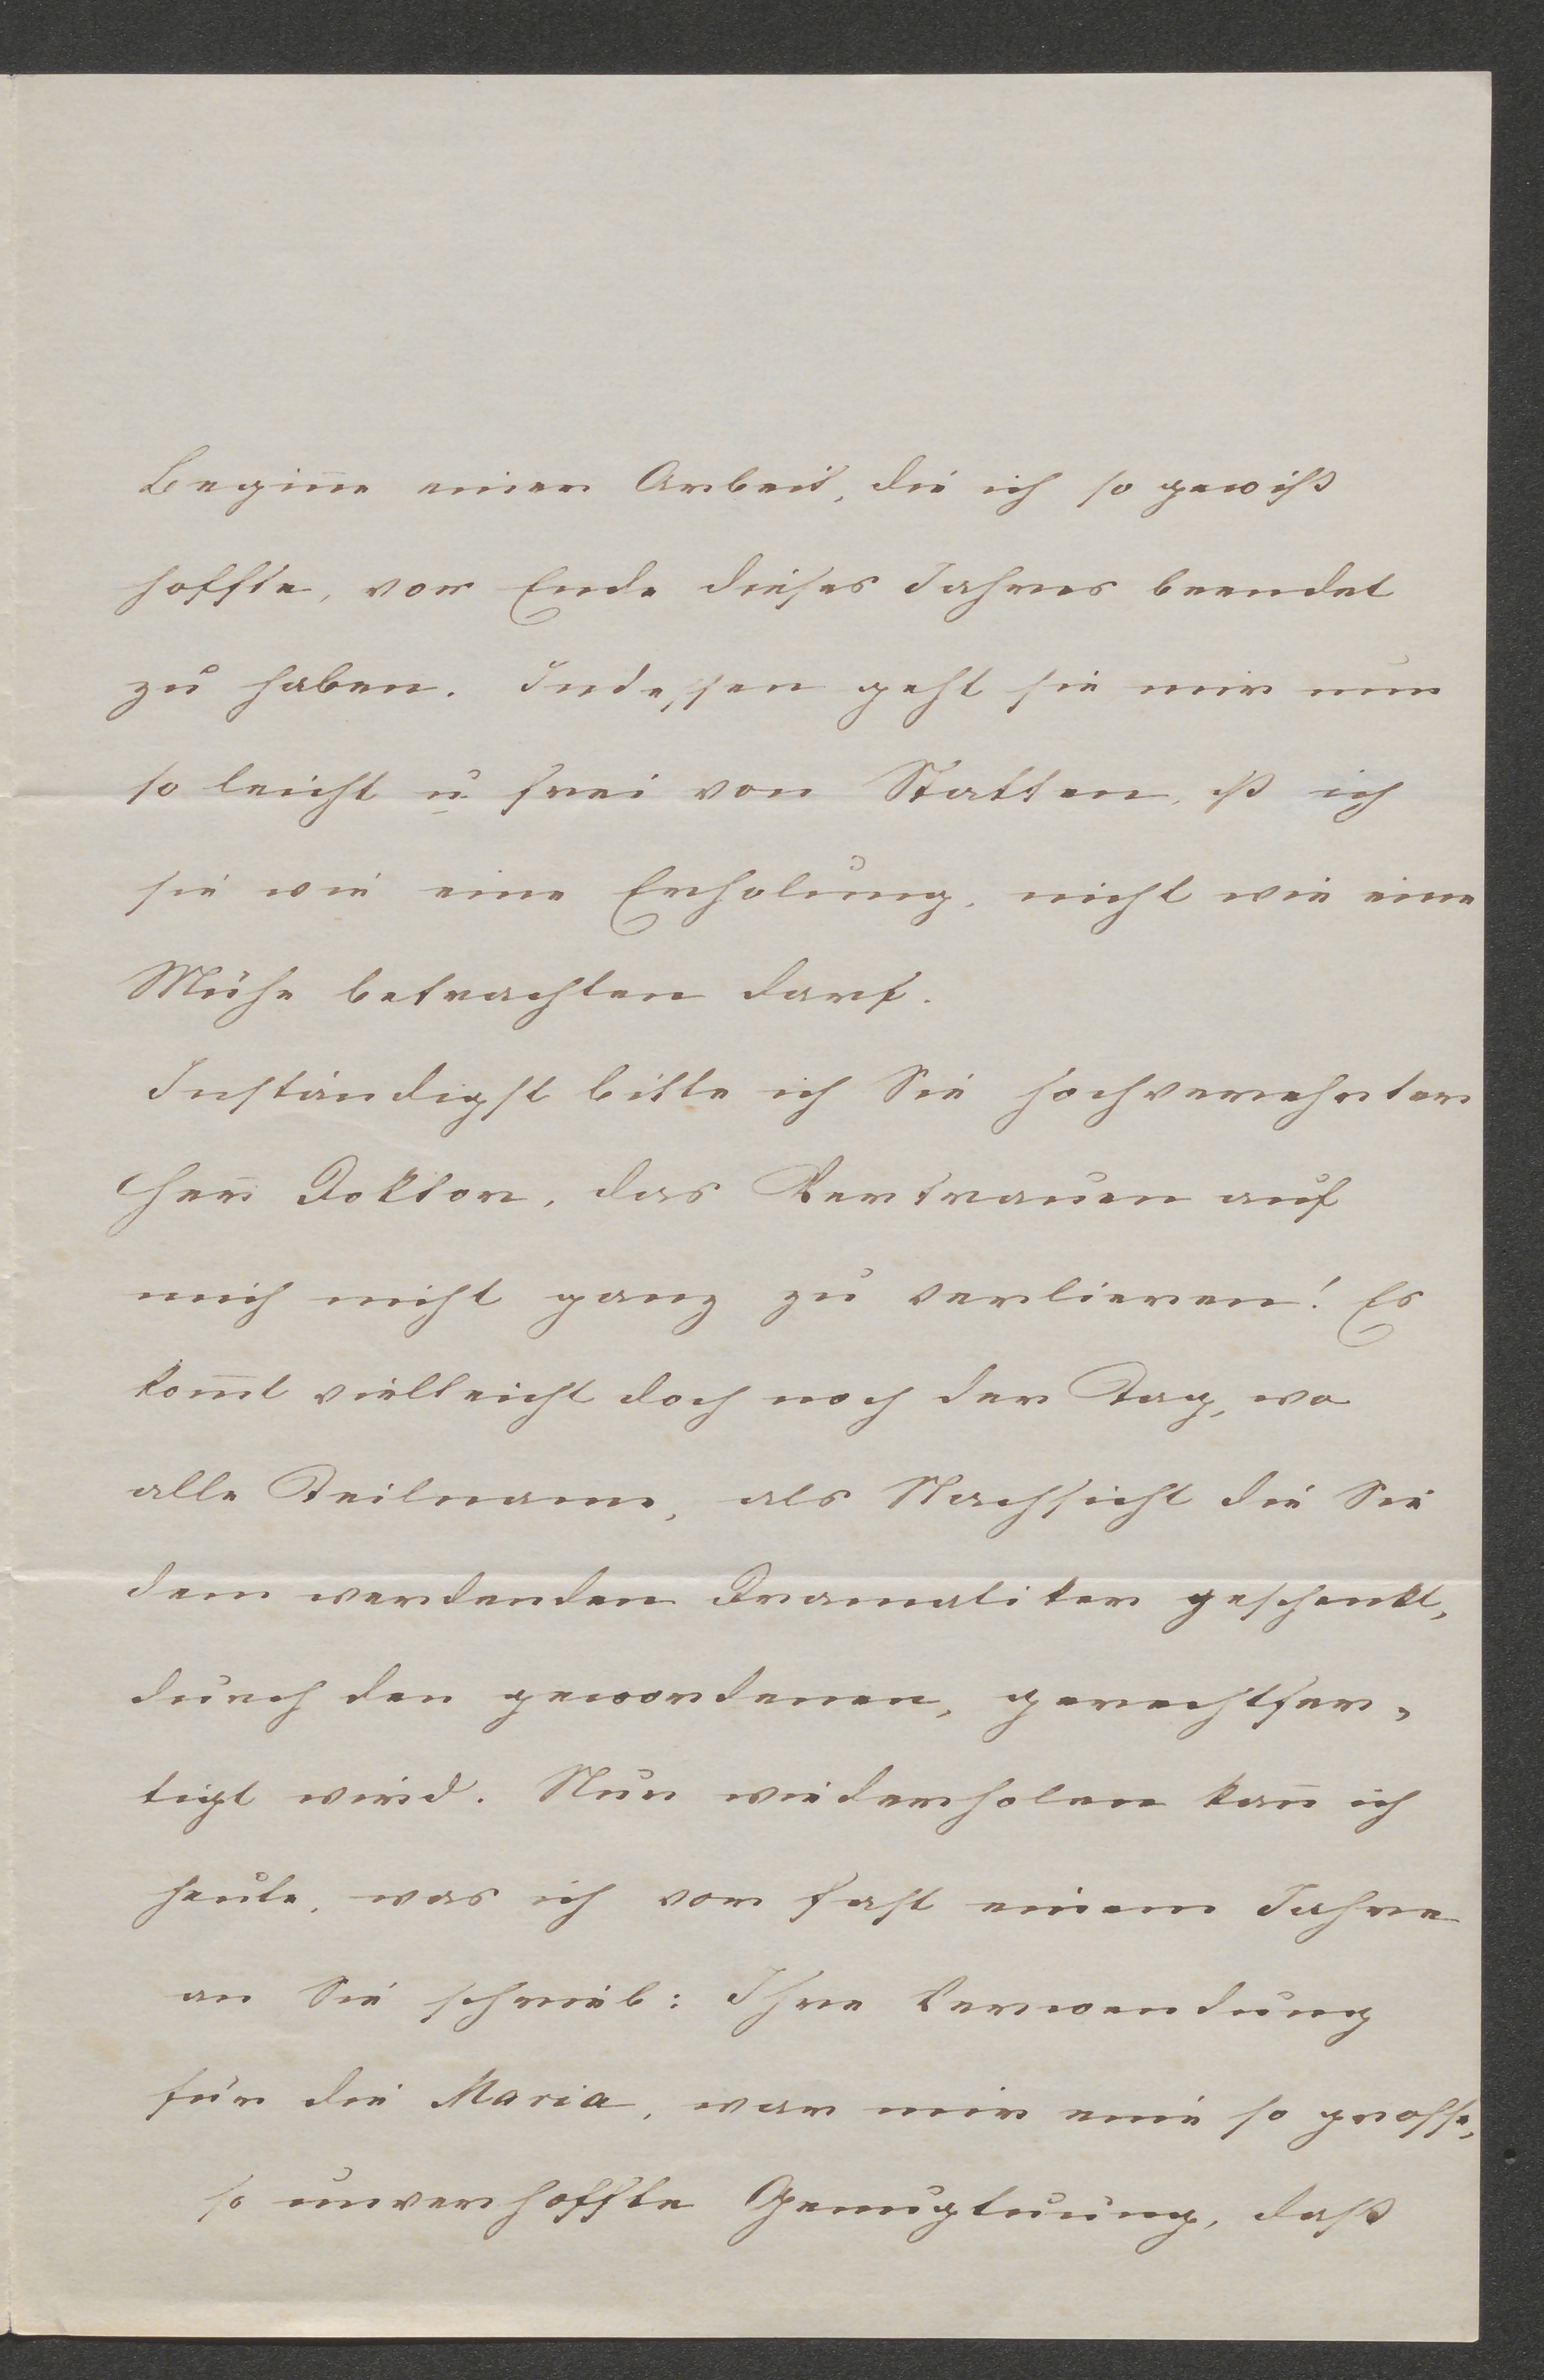 Begin̅e einer Arbeit, die ich so gewiß
hoffte, vor Ende dieses Jahres beendet
zu haben. Indessen geht sie mir nun
so leicht u frei von Statten, ß ich
sie wie eine Erholung, nicht wie eine
Mühe betrachten darf.
Inständigst bitte ich Sie hochverehrter
Her̅ Doktor, das Vertrauen auf
mich nicht ganz zu verlieren! Es
kom̅t vielleicht doch noch der Tag, wo
alle Teilname, als Nachsicht die Sie
dem werdenden Dramatiker geschenkt,
durch den gewordenen, gerechtfer-
tigt wird. Nur wiederholen kan̅ ich
heute, was ich vor fast einem Jahre
an Sie schrieb: Ihre Verwendung
für die Maria, war mir eine so grosse,
so unverhoffte Genugtuung, daß